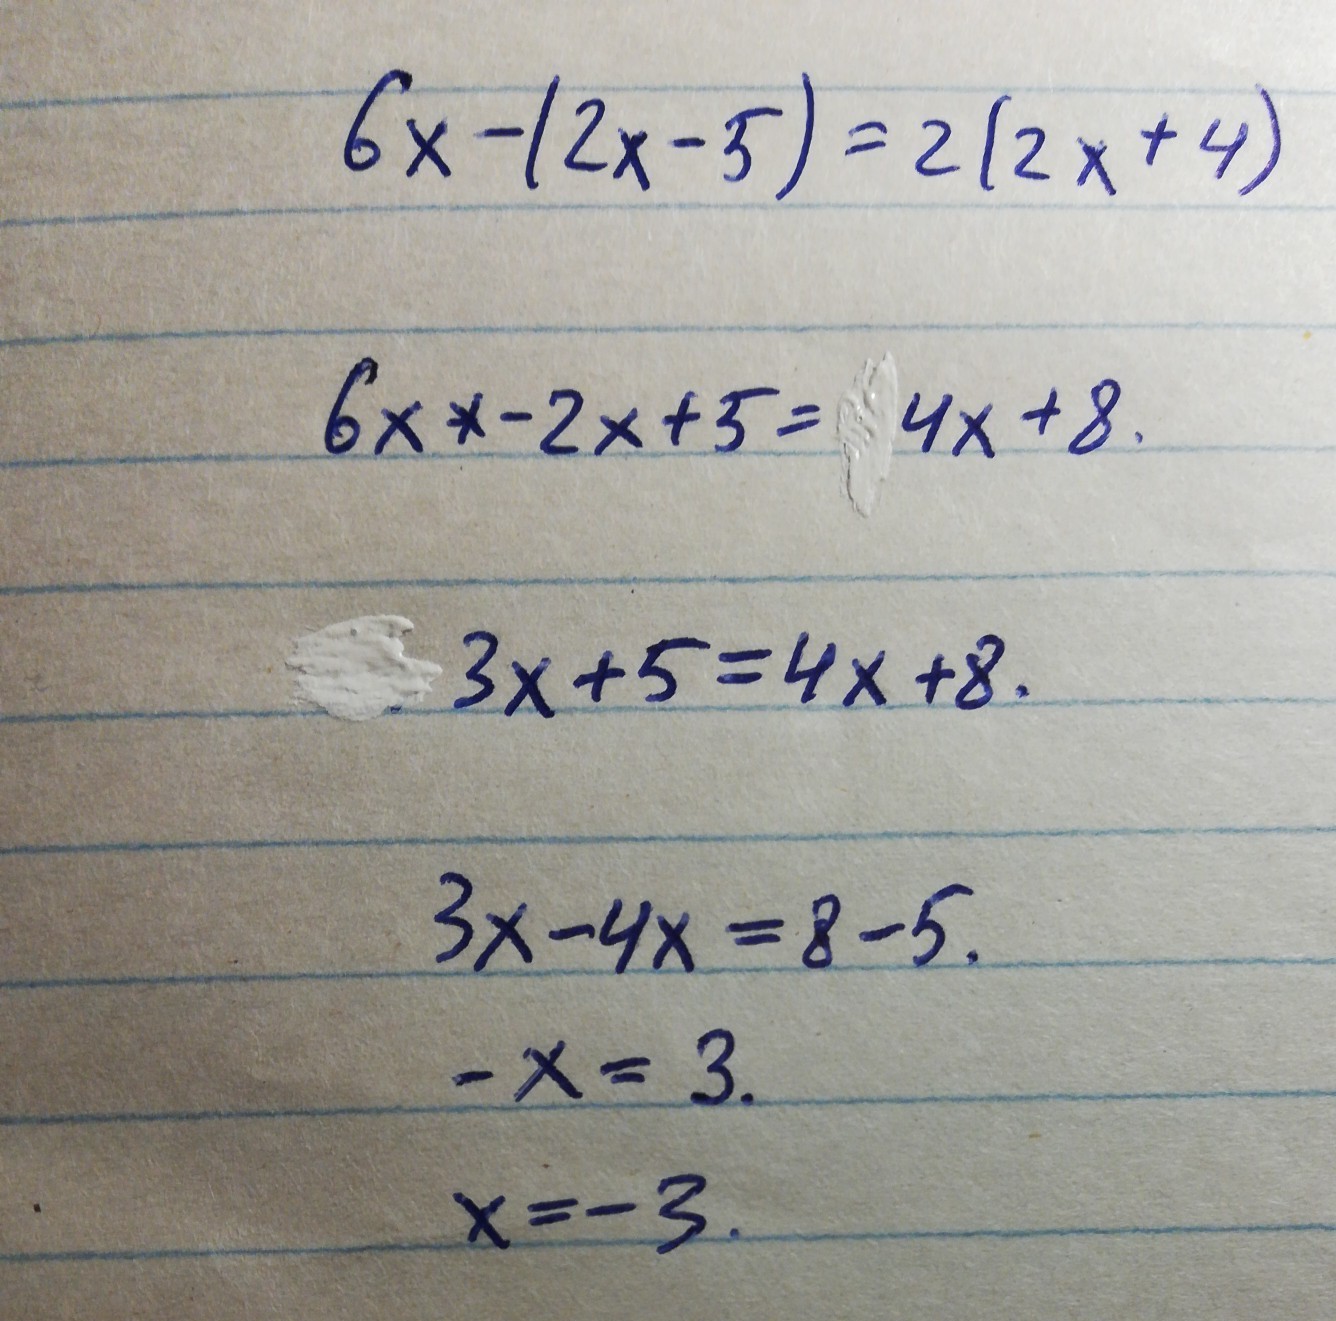 6x-(2x-5)=2(2x+4)
6x x-2x+5= 4x+8.
3x+5=4x+8.
3x-4x=8-5.
-x=3.
x=-3.